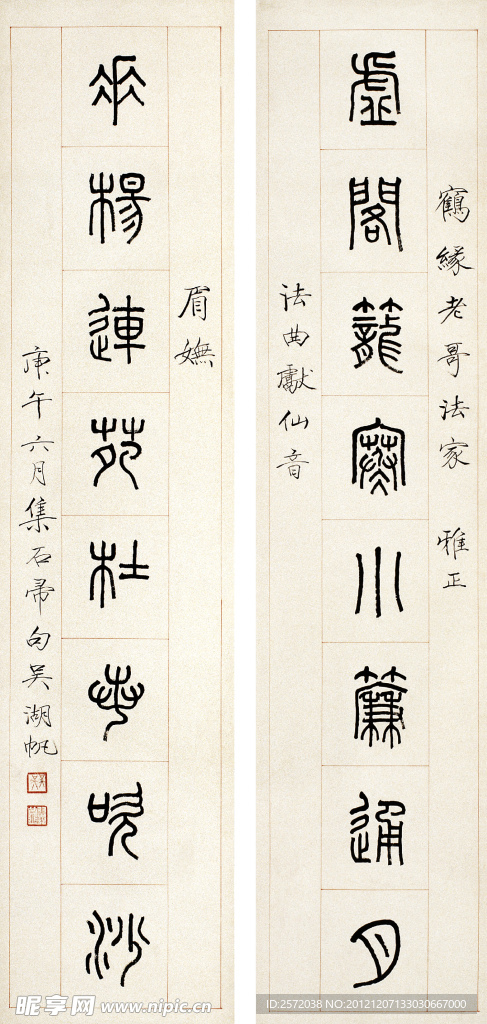 鶴緣老哥法家 雅正
虛閣籠寒小簾通月
法曲獻仙音
眉嫵
垂楊連苑杜若吹沙
庚午六月集石帚句吴湖帆
昵享网 www.nipic.cn
ID:2572038 NO:20121207133030667000